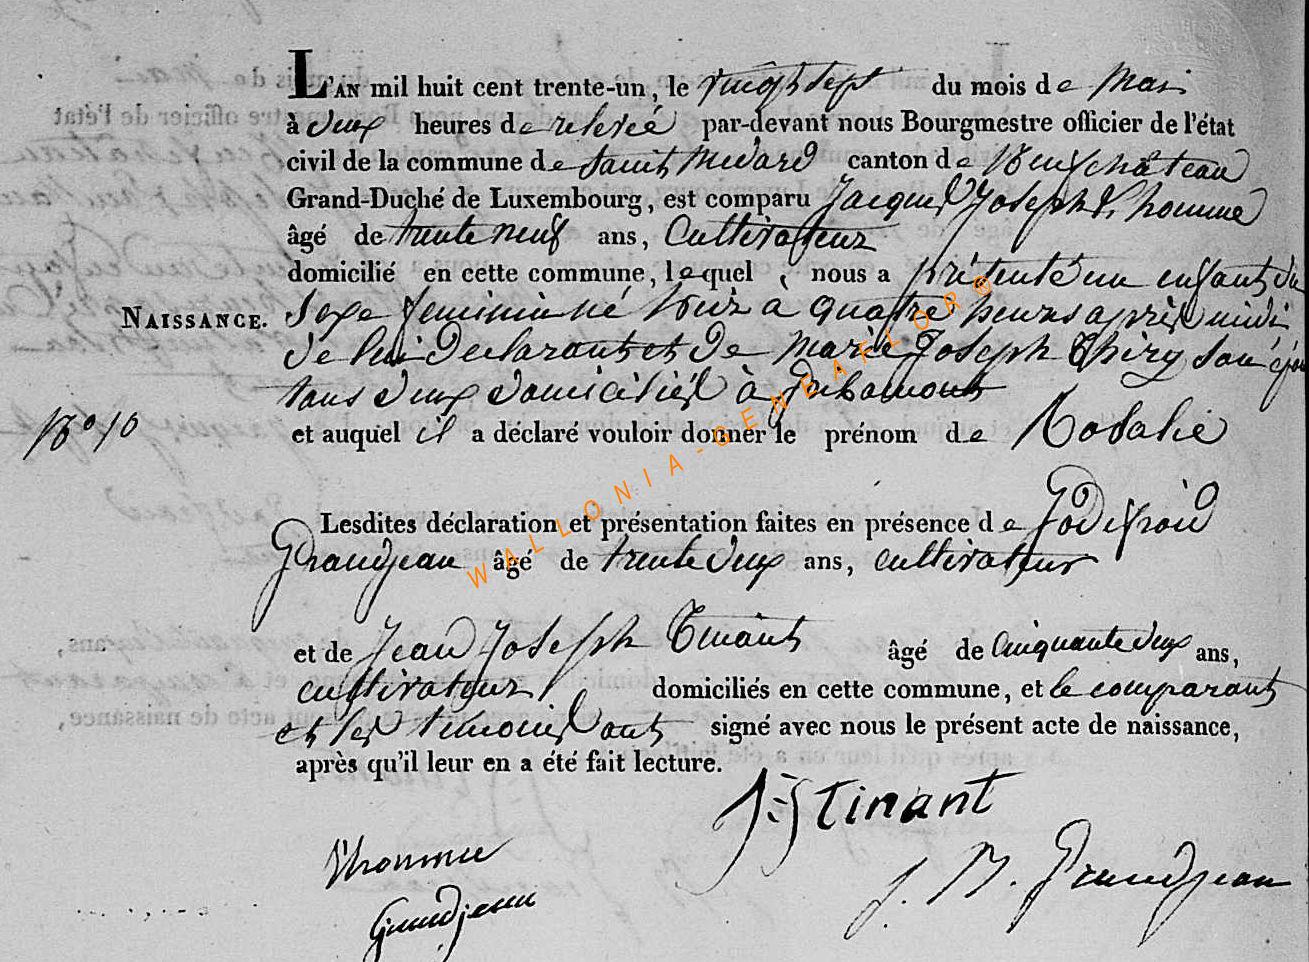 L'AN mil huit cent trente-un, le vingt sept du mois de Mai
à deux heures de relevée par-devant nous Bourgmestre officier de l'état
civil de la commune de Saint Medard canton de Neufchâteau
Grand-Duché de Luxembourg, est comparu Jacques Joseph L'homme
âgé de trente neuf ans, Cultivateur
domicilié en cette commune, lequel nous a présenté un enfant du
NAISSANCE. Sexe feminin né hier à quatre heures après midi
de lui Declarant et de Marie Joseph Thiry son
tous deux domiciliés à Gribomont
N° 10 et auquel il a déclaré vouloir donner le prénom de Rosalie
Lesdites déclaration et présentation faites en présence de Godefroid
Grandjean âgé de trente deux ans, cultivateur
et de Jean Joseph Tinant âgé de Cinquante deux ans,
cultivateur domiciliés en cette commune, et le comparant
et les témoins ont signé avec nous le présent acte de naissance,
après qu'il leur en a été fait lecture.
J-J Tinant
L'homme
J. N. Grandjean
Grandjean
WALLONIA-GENEAFLOR®